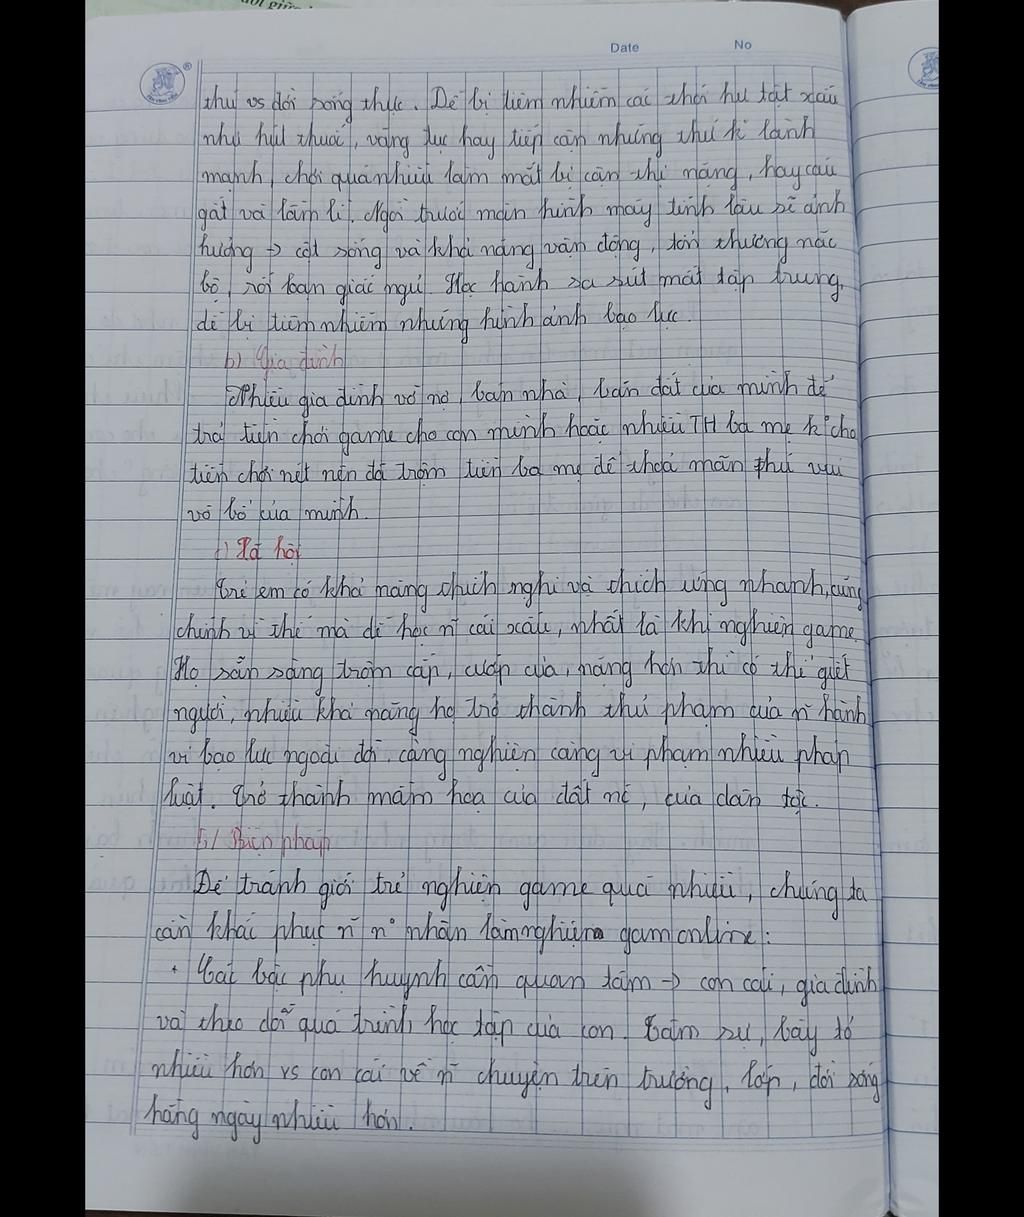 Date No
thu vs đời sống thực. Dễ bị tiêm nhiễm các thói hư tật xấu
như hút thuốc, văng tục hay tiếp cận những thứ k lành
mạnh, chơi quá nhiều làm mắt bị cận thị nặng, hay cáu
gắt và lầm lì. Ngồi trước màn hình máy tính lâu sẽ ảnh
hưởng → cột sống và khả năng vận động, tổn thương não
bộ, rối loạn giấc ngủ. Học hành sa sút mất tập trung,
dễ bị tiêm nhiễm những hình ảnh bạo lực.
b) Gia đình
Nhiều gia đình vỡ nợ, bán nhà, bán đất của mình để
trả tiền chơi game cho con mình hoặc nhiều TH ba mẹ k cho
tiền chơi nét nên đã trộm tiền ba mẹ để thoả mãn thú vui
vô bổ của mình.
c) Xã hội
Trẻ em có khả năng thích nghi và thích ứng nhanh, cũng
chính vì thế mà dễ học n~ cái xấu, nhất là khi nghiện game.
Họ sẵn sàng trộm cắp, cướp của, nặng hơn thì có thể giết
người, nhiều khả năng họ trở thành thủ phạm của n~ hành
vi bạo lực ngoài đời. càng nghiện càng vi phạm nhiều pháp
luật. Trở thành mầm họa của đất nc, của dân tộc.
5/ Biện pháp
Để tránh giới trẻ nghiện game quá nhiều, chúng ta
cần khắc phục n~ n° nhân làm nghiện gam online:
• Các bậc phụ huynh cần quan tâm → con cái, gia đình
và theo dõi quá trình học tập của con. Tâm sự, bày tỏ
nhiều hơn vs con cái về n~ chuyện trên trường, lớp, đời sống
hằng ngày nhiều hơn.